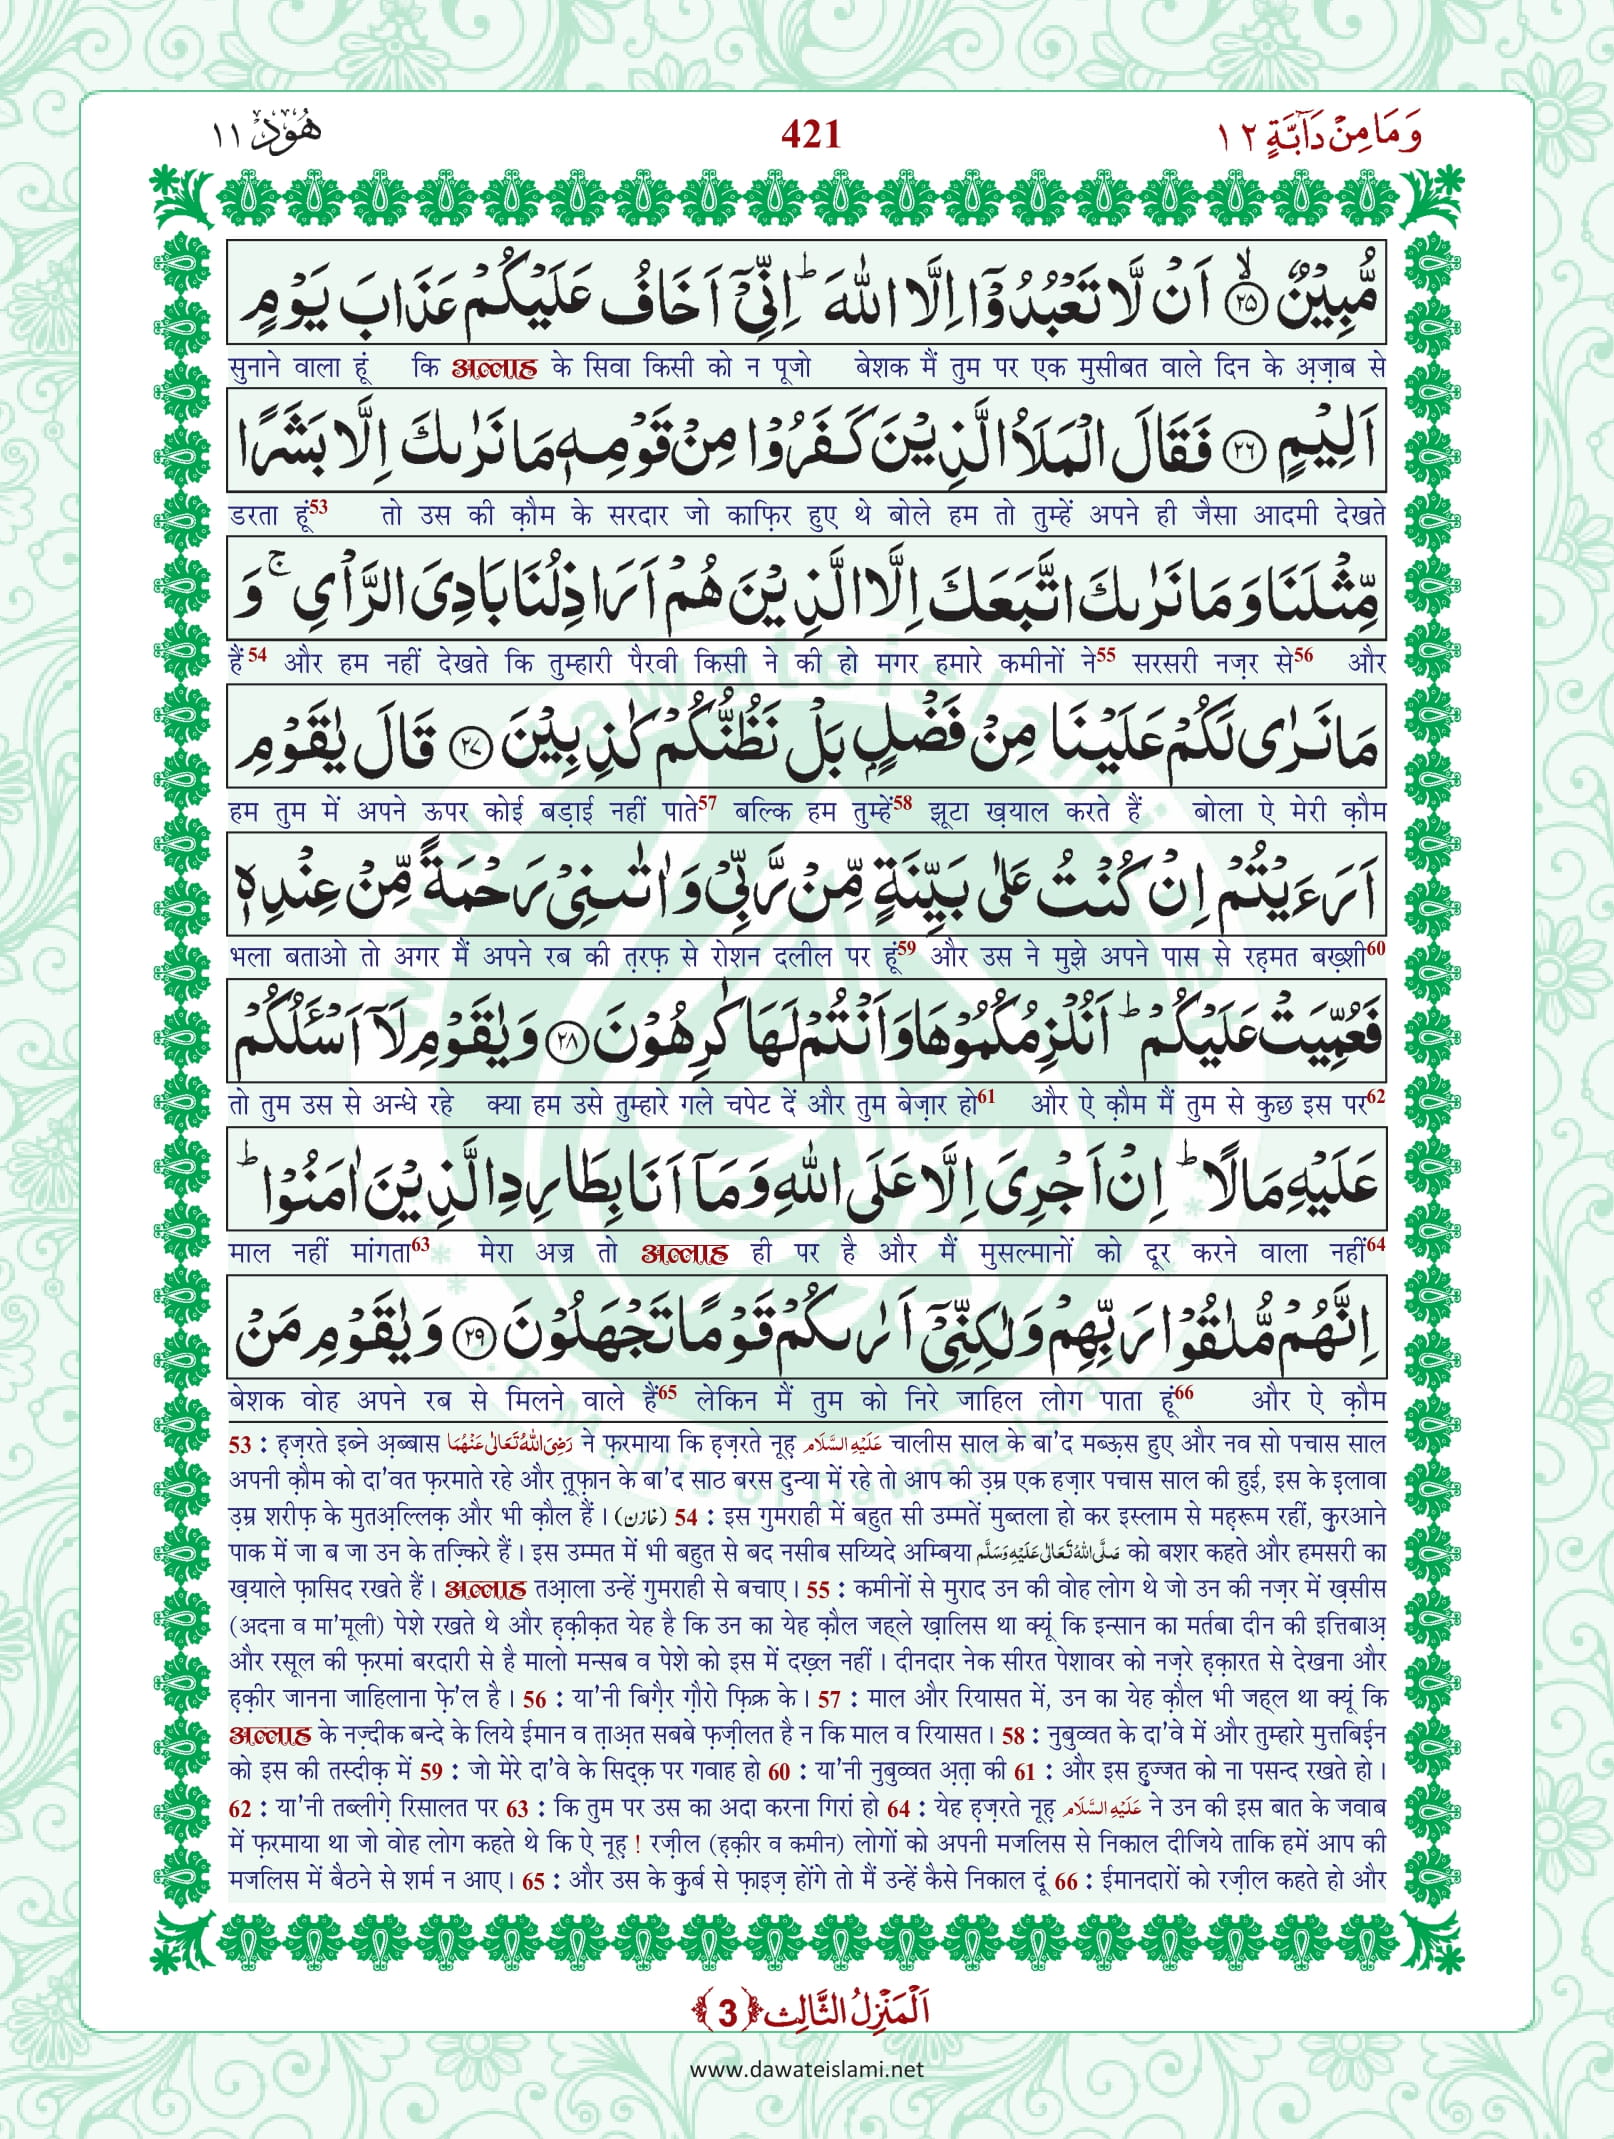 وَمَا مِنْ دَآبَّةٍ ١٢
421
هُوْد ١١
مُّبِيْنٌۙ ﴿۲۵﴾ اَنْ لَّا تَعْبُدُوْۤا اِلَّا اللّٰهَ ؕ اِنِّیْۤ اَخَافُ عَلَیْكُمْ عَذَابَ یَوْمٍ
सुनाने वाला हूं कि अल्लाह के सिवा किसी को न पूजो बेशक मैं तुम पर एक मुसीबत वाले दिन के अ़ज़ाब से
اَلِیْمٍ ﴿۲۶﴾ فَقَالَ الْمَلَاُ الَّذِیْنَ كَفَرُوْا مِنْ قَوْمِهٖ مَا نَرٰىكَ اِلَّا بَشَرًا
डरता हूं53 तो उस की क़ौम के सरदार जो काफ़िर हुए थे बोले हम तो तुम्हें अपने ही जैसा आदमी देखते
مِّثْلَنَا وَ مَا نَرٰىكَ اتَّبَعَكَ اِلَّا الَّذِیْنَ هُمْ اَرَاذِلُنَا بَادِیَ الرَّاْیِ ۚ وَ
हैं54 और हम नहीं देखते कि तुम्हारी पैरवी किसी ने की हो मगर हमारे कमीनों ने55 सरसरी नज़र से56 और
مَا نَرٰی لَكُمْ عَلَیْنَا مِنْ فَضْلٍۭ بَلْ نَظُنُّكُمْ كٰذِبِیْنَ ﴿۲۷﴾ قَالَ یٰقَوْمِ
हम तुम में अपने ऊपर कोई बड़ाई नहीं पाते57 बल्कि हम तुम्हें58 झूटा ख़याल करते हैं बोला ऐ मेरी क़ौम
اَرَءَیْتُمْ اِنْ كُنْتُ عَلٰی بَیِّنَةٍ مِّنْ رَّبِّیْ وَ اٰتٰىنِیْ رَحْمَةً مِّنْ عِنْدِهٖ
भला बताओ तो अगर मैं अपने रब की त़रफ़ से रोशन दलील पर हूं59 और उस ने मुझे अपने पास से रह़मत बख़्शी60
فَعُمِّیَتْ عَلَیْكُمْ ؕ اَنُلْزِمُكُمُوْهَا وَ اَنْتُمْ لَهَا كٰرِهُوْنَ ﴿۲۸﴾ وَ یٰقَوْمِ لَاۤ اَسْـَٔلُكُمْ
तो तुम उस से अन्धे रहे क्या हम उसे तुम्हारे गले चपेट दें और तुम बेज़ार हो61 और ऐ क़ौम मैं तुम से कुछ इस पर62
عَلَیْهِ مَالًا ؕ اِنْ اَجْرِیَ اِلَّا عَلَی اللّٰهِ وَ مَاۤ اَنَا بِطَارِدِ الَّذِیْنَ اٰمَنُوْا ؕ
माल नहीं मांगता63 मेरा अज्र तो अल्लाह ही पर है और मैं मुसल्मानों को दूर करने वाला नहीं64
اِنَّهُمْ مُّلٰقُوْا رَبِّهِمْ وَ لٰكِنِّیْۤ اَرٰىكُمْ قَوْمًا تَجْهَلُوْنَ ﴿۲۹﴾ وَ یٰقَوْمِ مَنْ
बेशक वोह अपने रब से मिलने वाले हैं65 लेकिन मैं तुम को निरे जाहिल लोग पाता हूं66 और ऐ क़ौम
53 : ह़ज़रते इब्ने अ़ब्बास رَضِیَ اللّٰهُ تَعَالٰی عَنْهُمَا ने फ़रमाया कि ह़ज़रते नूह़ عَلَیْهِ السَّلَام चालीस साल के बा'द मब्ऊ़स हुए और नव सो पचास साल
अपनी क़ौम को दा'वत फ़रमाते रहे और त़ूफ़ान के बा'द साठ बरस दुन्या में रहे तो आप की उ़म्र एक हज़ार पचास साल की हुई, इस के इलावा
उ़म्र शरीफ़ के मुतअ़ल्लिक़ और भी क़ौल हैं । (خازن) 54 : इस गुमराही में बहुत सी उम्मतें मुब्तला हो कर इस्लाम से मह़रूम रहीं, क़ुरआने
पाक में जा ब जा उन के तज़्किरे हैं । इस उम्मत में भी बहुत से बद नसीब सय्यिदे अम्बिया صَلَّی اللّٰهُ تَعَالٰی عَلَیْهِ وَسَلَّم को बशर कहते और हमसरी का
ख़याले फ़ासिद रखते हैं । अल्लाह तआ़ला उन्हें गुमराही से बचाए । 55 : कमीनों से मुराद उन की वोह लोग थे जो उन की नज़र में ख़सीस
(अदना व मा'मूली) पेशे रखते थे और ह़क़ीक़त येह है कि उन का येह क़ौल जह्ले ख़ालिस था क्यूं कि इन्सान का मर्तबा दीन की इत्तिबाअ़
और रसूल की फ़रमां बरदारी से है मालो मन्सब व पेशे को इस में दख़्ल नहीं । दीनदार नेक सीरत पेशावर को नज़रे ह़क़ारत से देखना और
ह़क़ीर जानना जाहिलाना फ़े'ल है । 56 : या'नी बिग़ैर ग़ौरो फ़िक्र के । 57 : माल और रियासत में, उन का येह क़ौल भी जह्ल था क्यूं कि
अल्लाह के नज़्दीक बन्दे के लिये ईमान व त़ाअ़त सबबे फ़ज़ीलत है न कि माल व रियासत । 58 : नुबुव्वत के दा'वे में और तुम्हारे मुत्तबिईन
को इस की तस्दीक़ में 59 : जो मेरे दा'वे के सिद्क़ पर गवाह हो 60 : या'नी नुबुव्वत अ़त़ा की 61 : और इस ह़ुज्जत को ना पसन्द रखते हो ।
62 : या'नी तब्लीग़े रिसालत पर 63 : कि तुम पर उस का अदा करना गिरां हो 64 : येह ह़ज़रते नूह़ عَلَیْهِ السَّلَام ने उन की इस बात के जवाब
में फ़रमाया था जो वोह लोग कहते थे कि ऐ नूह़ ! रज़ील (ह़क़ीर व कमीन) लोगों को अपनी मजलिस से निकाल दीजिये ताकि हमें आप की
मजलिस में बैठने से शर्म न आए । 65 : और उस के क़ुर्ब से फ़ाइज़ होंगे तो मैं उन्हें कैसे निकाल दूं 66 : ईमानदारों को रज़ील कहते हो और
اَلْمَنْزِلُ الثَّالِث ﴿3﴾
www.dawateislami.net